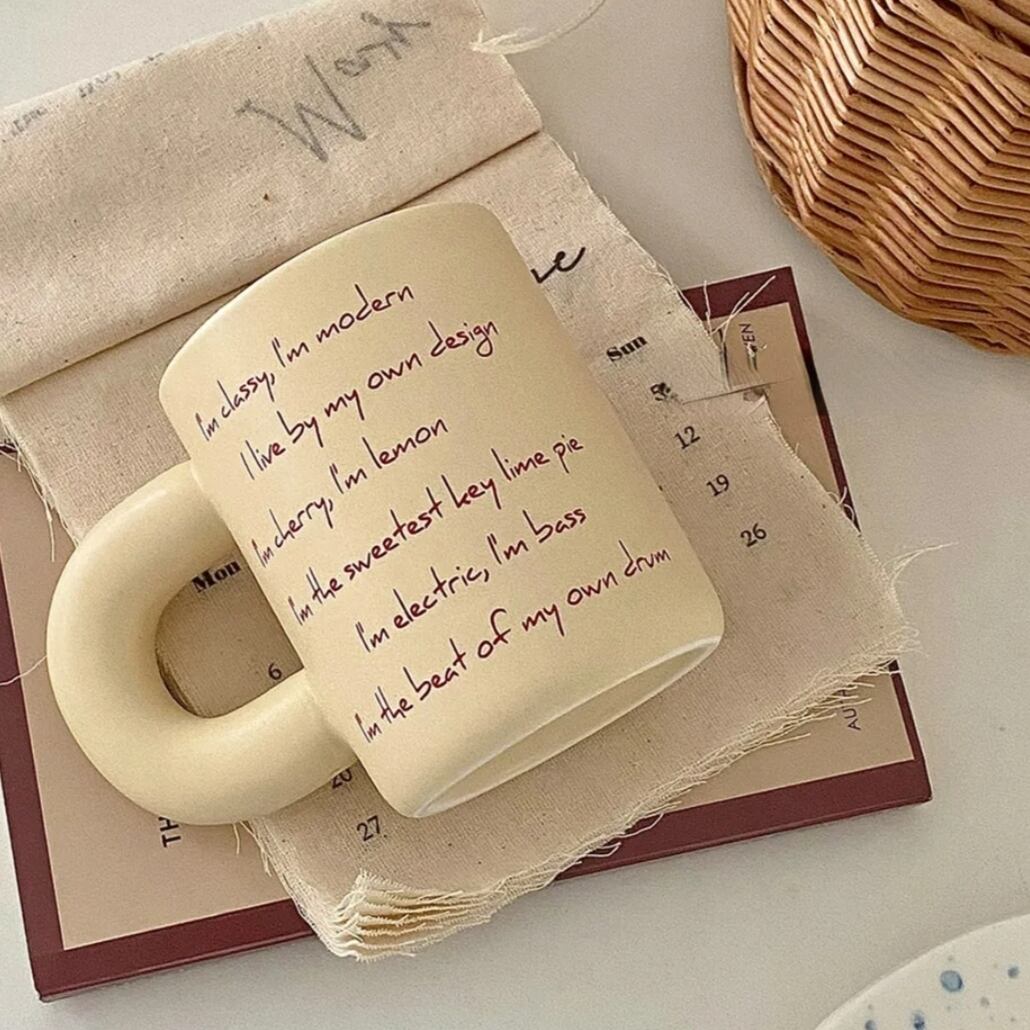 Work
ne
I'm classy, I'm modern
I live by my own design
I'm cherry, I'm lemon
I'm the sweetest key lime pie
I'm electric, I'm bass
I'm the beat of my own drum
Sun
12
19
26
Mon
6
20
27
TH
EN
AU